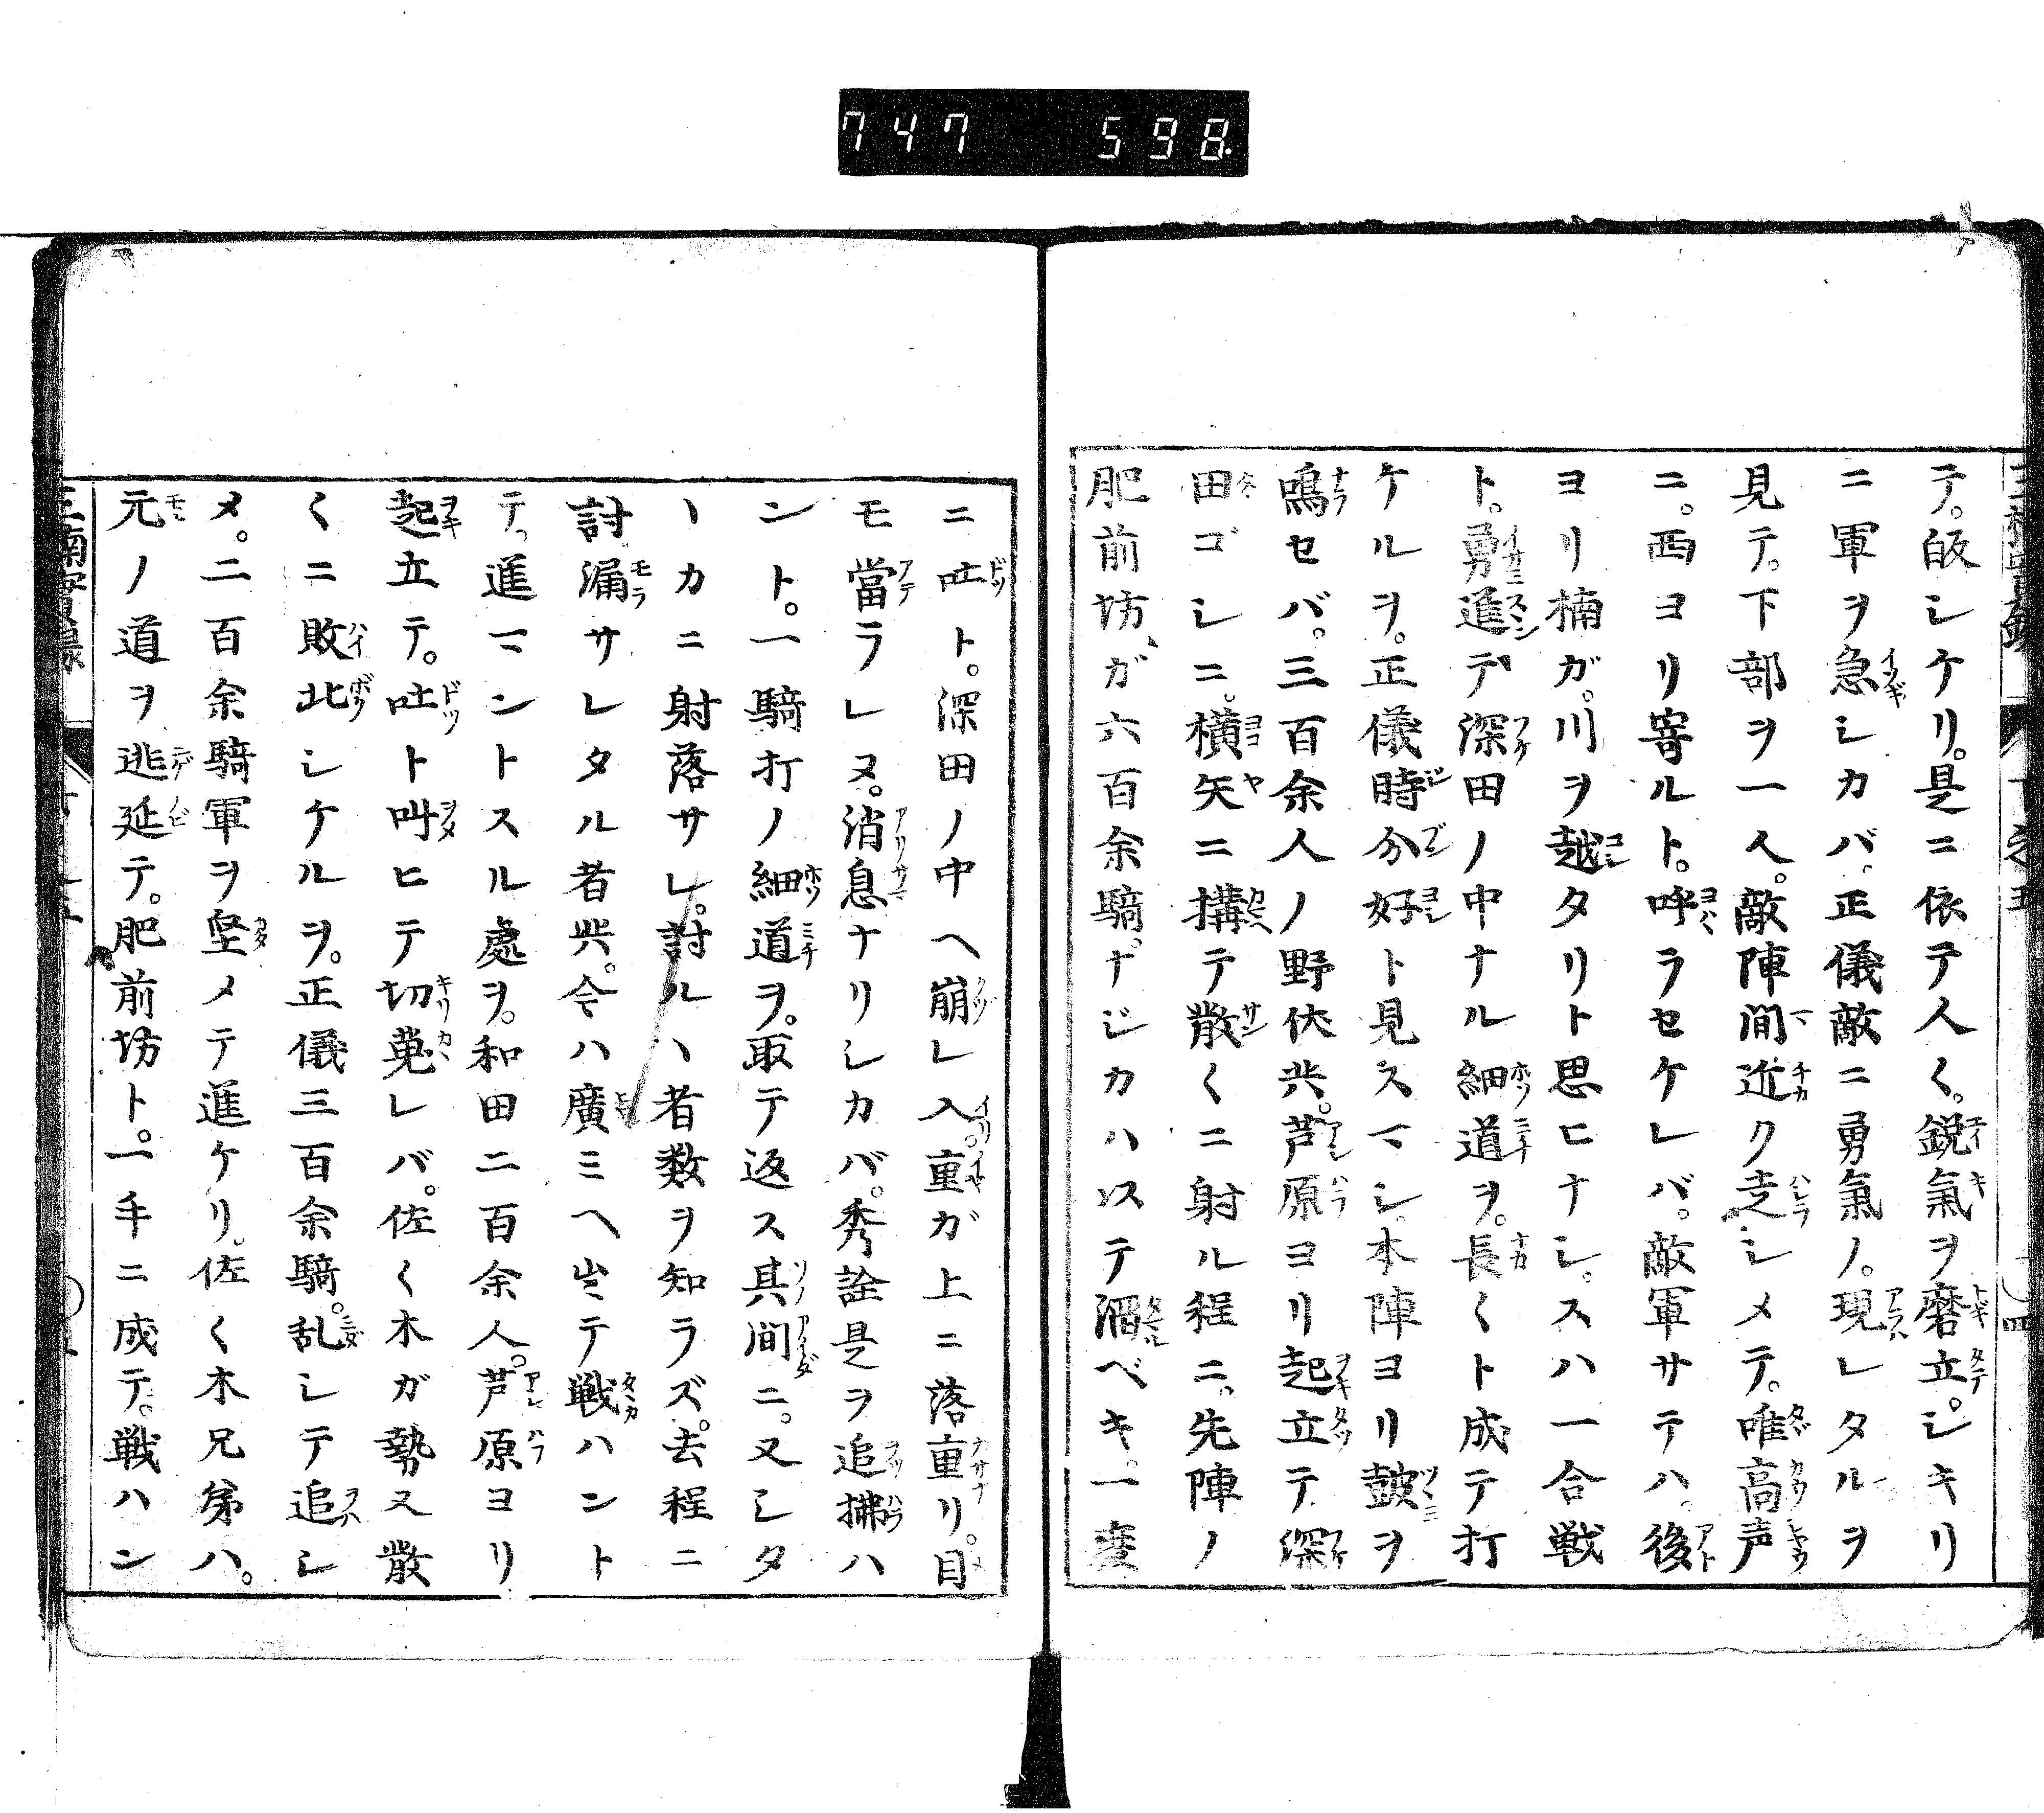 747 598.
テ。皈シケリ。是ニ依テ人〱。鋭氣ヲ磨立。シキリ
ニ軍ヲ急シカバ。正儀敵ニ勇氣ノ。現レタルヲ
見テ。下部ヲ一人。敵陣間近ク走シメテ。唯高声
ニ。西ヨリ寄ルト。呼ラセケレバ。敵軍サテハ。後
ヨリ楠ガ。川ヲ越タリト思ヒナシ。スハ一合戦
ト。勇進デ深田ノ中ナル細道ヲ。長〱ト成テ打
ケルヲ。正儀時分好ト見スマシ。本陣ヨリ皷ヲ
鳴セバ。三百余人ノ野伏共。芦原ヨリ起立テ深
田ゴシニ。横矢ニ搆テ散〱ニ射ル程ニ。先陣ノ
肥前坊ガ六百余騎。ナジカハ以テ溜ベキ。一度
ニ吐ト。深田ノ中ヘ崩レ入。重ガ上ニ落重リ。目
モ當ラレヌ。消息ナリシカバ。秀詮是ヲ追拂ハ
ント。一騎打ノ細道ヲ。取テ返ス其間ニ。又シタ
ヽカニ射落サレ。討ルヽ者数ヲ知ラズ。去程ニ
討漏サレタル者共。今ハ廣ミヘ出テ戦ハント
テ。進マントスル處ヲ。和田二百余人。芦原ヨリ
起立テ。吐ト叫ヒテ切蒐レバ。佐〱木ガ勢又散
〱ニ敗北シケルヲ。正儀三百余騎。乱シテ追シ
メ。二百余騎軍ヲ堅メテ進ケリ。佐〱木兄弟ハ。
元ノ道ヲ逃延テ。肥前坊ト。一手ニ成テ。戦ハン